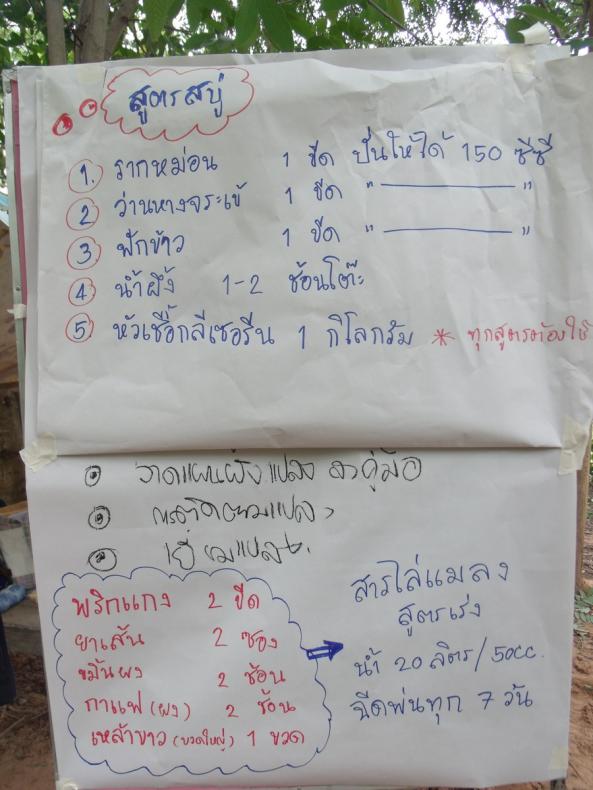 สูตรสบู่
1. รากหม่อน 1 ขีด ปั่นให้ได้ 150 ซีซี
2 ว่านหางจระเข้ 1 ขีด " ——— "
3 ฟักข้าว 1 ขีด " ——— "
4 น้ำผึ้ง 1-2 ช้อนโต๊ะ
5 หัวเชื้อกลีเซอรีน 1 กิโลกรัม * ทุกสูตรต้องใช้
วาดแผนผังแปลง ลงคู่มือ
การติดตามแปลง
เยี่ยมแปลง.
พริกแกง 2 ขีด
ยาเส้น 2 ซอง
ขมิ้นผง 2 ช้อน
กาแฟ (ผง) 2 ช้อน
เหล้าขาว (ขวดใหญ่) 1 ขวด
สารไล่แมลง
สูตรเร่ง
น้ำ 20 ลิตร/50cc.
ฉีดพ่นทุก 7 วัน